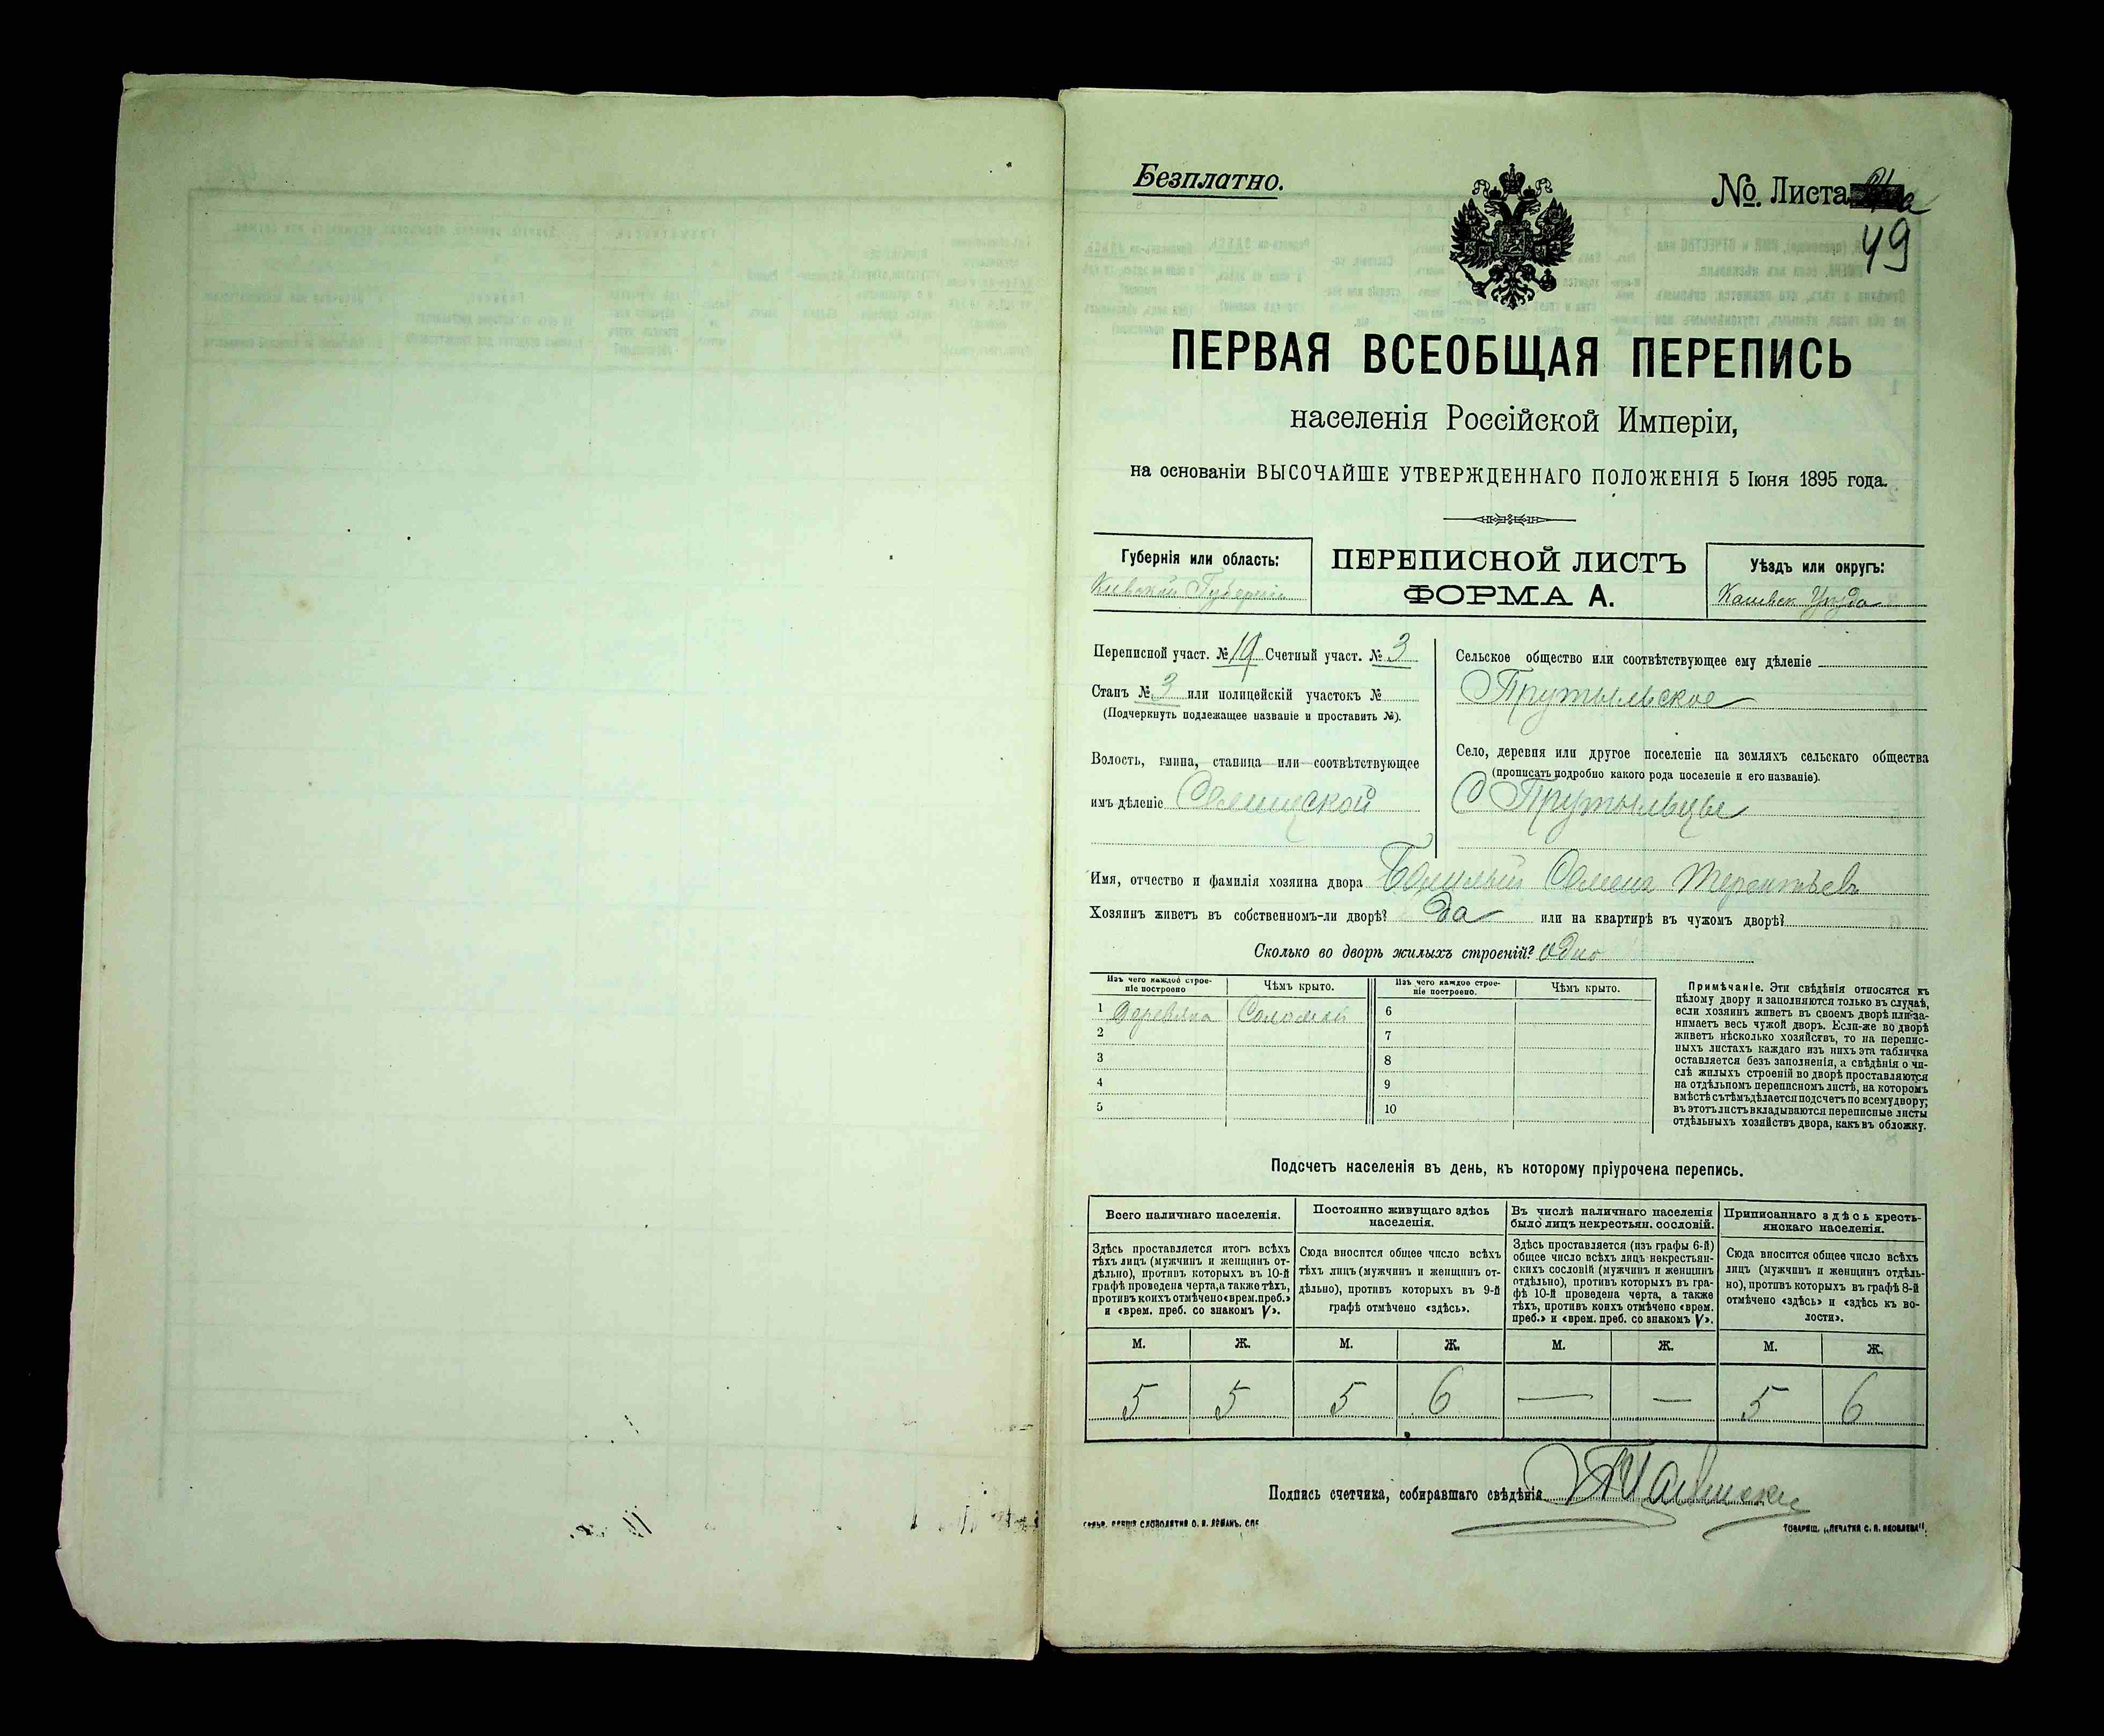 Безплатно.
№ Листа
49
ПЕРВАЯ ВСЕОБЩАЯ ПЕРЕПИСЬ
населенія Россійской Имперіи,
на основаніи ВЫСОЧАЙШЕ УТВЕРЖДЕННАГО ПОЛОЖЕНІЯ 5 Іюня 1895 года.
Губернія или область:
Киевской Губернии
ПЕРЕПИСНОЙ ЛИСТЪ
ФОРМА А.
Уѣздъ или округъ:
Каневск Уезда
Переписной участ. № 19 Счетный участ. № 3
Станъ № 3 или полицейскій участокъ №
(Подчеркнуть подлежащее названіе и проставить №).
Волость, гмина, станица или соотвѣтствующее
имъ дѣленіе
Сельское общество или соотвѣтствующее ему дѣленіе
Прутыльское
Село, деревня или другое поселеніе на земляхъ сельскаго общества
(прописать подробно какого рода поселеніе и его названіе).
С Прутыльцы
Имя, отчество и фамилія хозяина двора Семенъ Терентьевъ
Хозяинъ живетъ въ собственномъ-ли дворѣ? Да или на квартирѣ въ чужомъ дворѣ?
Сколько во дворѣ жилыхъ строеній? одно
Изъ чего каждое строе-
ніе построено
Чѣмъ крыто.
Изъ чего каждое строе-
ніе построено.
Чѣмъ крыто.
1 Деревяна Соломой 6
2 7
3 8
4 9
5 10
Примѣчаніе. Эти свѣдѣнія относятся къ
цѣлому двору и заполняются только въ случаѣ,
если хозяинъ живетъ въ своемъ дворѣ или за-
нимаетъ весь чужой дворъ. Если-же во дворѣ
живетъ нѣсколько хозяйствъ, то на перепис-
ныхъ листахъ каждаго изъ нихъ эта табличка
оставляется безъ заполненія, а свѣдѣнія о чи-
слѣ жилыхъ строеній во дворѣ проставляются
на отдѣльномъ переписномъ листѣ, на которомъ
вмѣстѣ съ тѣмъ дѣлается подсчетъ по всему двору;
въ этотъ листъ вкладываются переписные листы
отдѣльныхъ хозяйствъ двора, какъ въ обложку.
Подсчетъ населенія въ день, къ которому пріурочена перепись.
Всего наличнаго населенія.
Здѣсь проставляется итогъ всѣхъ
тѣхъ лицъ (мужчинъ и женщинъ от-
дѣльно), противъ которыхъ въ 10-й
графѣ проведена черта, а также тѣхъ,
противъ коихъ отмѣчено «врем. преб.»
и «врем. преб. со знакомъ V».
Постоянно живущаго здѣсь
населенія.
Сюда вносится общее число всѣхъ
тѣхъ лицъ (мужчинъ и женщинъ от-
дѣльно), противъ которыхъ въ 9-й
графѣ отмѣчено «здѣсь».
Въ числѣ наличнаго населенія
было лицъ некрестьян. сословій.
Здѣсь проставляется (изъ графы 6-й)
общее число всѣхъ лицъ некрестьян-
скихъ сословій (мужчинъ и женщинъ
отдѣльно), противъ которыхъ въ гра-
фѣ 10-й проведена черта, а также
тѣхъ, противъ коихъ отмѣчено «врем.
преб.» и «врем. преб. со знакомъ V».
Приписаннаго здѣсь кресть-
янскаго населенія.
Сюда вносится общее число всѣхъ
лицъ (мужчинъ и женщинъ отдѣль-
но), противъ которыхъ въ графѣ 8-й
отмѣчено «здѣсь» и «здѣсь къ во-
лости».
М. Ж. М. Ж. М. Ж. М. Ж.
5 5 5 6 — — 5 6
Подпись счетчика, собиравшаго свѣдѣнія
ТОВАРИЩ. „ПЕЧАТНЯ С. П. ЯКОВЛЕВА".